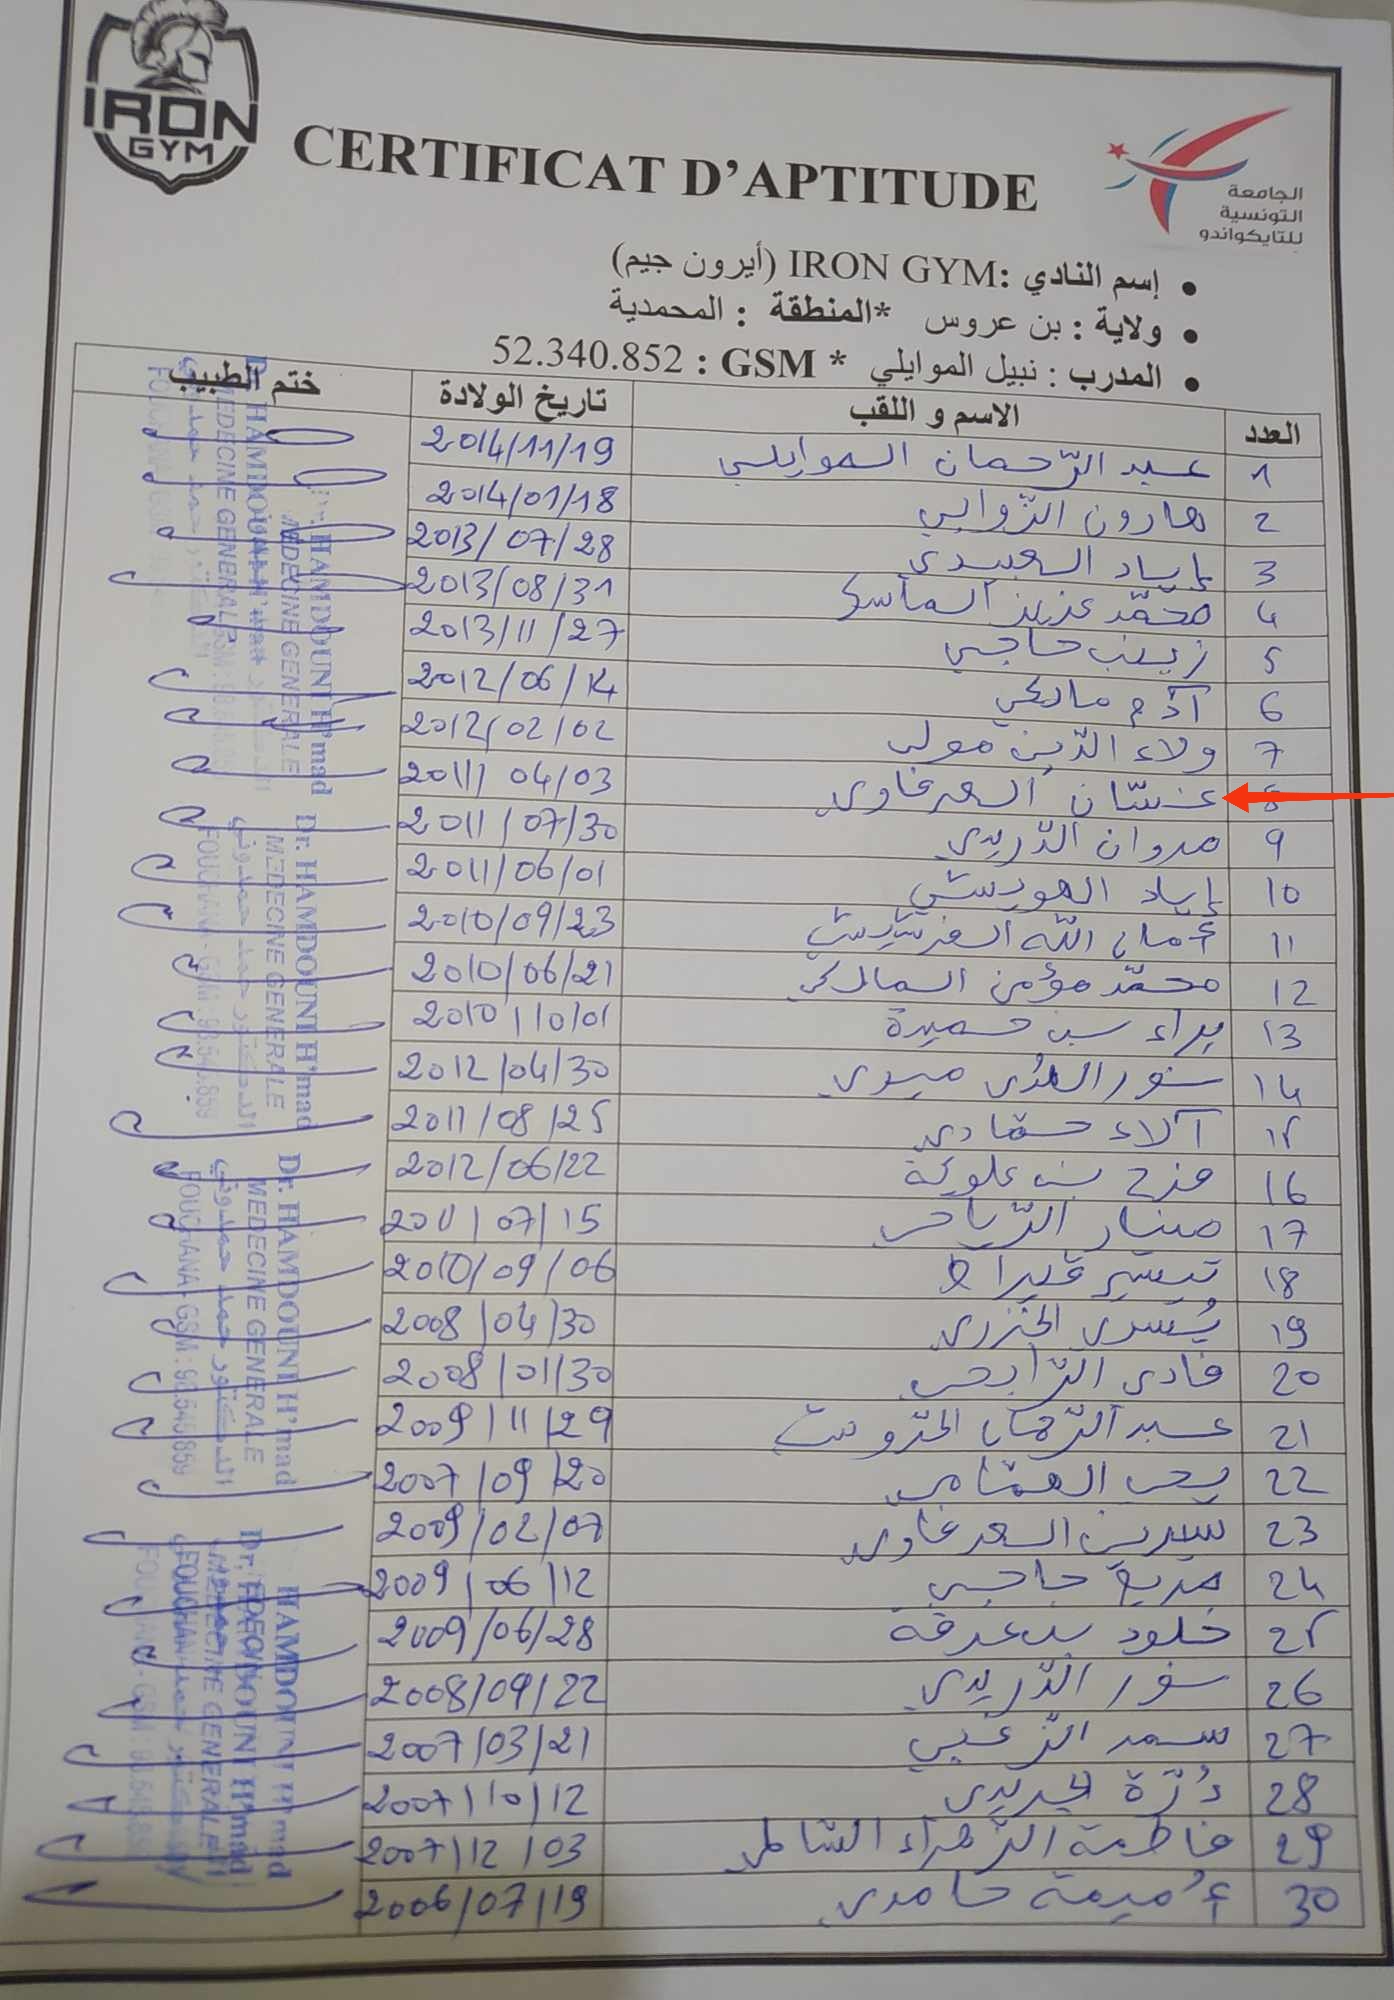 IRON
GYM
CERTIFICAT D'APTITUDE
الجامعة
التونسية
للتايكواندو
• إسم النادي :IRON GYM (أيرون جيم)
• ولاية : بن عروس *المنطقة : المحمدية
• المدرب : نبيل الموايلي * GSM : 52.340.852
العدد الاسم و اللقب تاريخ الولادة ختم الطبيب
1 عبد الرّحمان الموايلي 2014/11/19
2 هارون الزوابي 2014/01/18
3 إياد العبيدي 2013/07/28
4 محمّد عزيز الماسي 2013/08/31
5 زينب حاجي 2013/11/27
6 آدم مالكي 2012/06/14
7 ولاء الدّين مولى 2012/02/02
8 غسّان السعرغاوي 2011/04/03
9 مروان الدّريدي 2011/07/30
10 إياد 2011/06/01
11 أمان الله الفرشيشي 2010/09/23
12 محمّد مؤمن المالكي 2010/06/21
13 براء بن حميدة 2010/10/01
14 نور الهدى ميري 2012/04/30
15 آلاء حمّادي 2011/08/25
16 فرح بن علوية 2012/06/22
17 منار الرّياحي 2011/07/15
18 تيسير قيراط 2010/09/06
19 يُسرى الخزري 2008/04/30
20 فادي الرّابحي 2008/01/30
21 عبد الرّحمان 2009/11/29
22 يحي العثماني 2007/09/20
23 سيرين السعرغاوي 2009/02/07
24 مرية حاجي 2009/06/12
25 خلود بن عرفة 2009/06/28
26 نور الدّريدي 2008/09/22
27 سمر الزغبي 2007/03/21
28 دُرّة الجريدي 2007/10/12
29 فاطمة الزّهراء الشاملي 2007/12/03
30 أُميمة حامدي 2006/07/19
Dr. HAMDOUNI H'mad
MEDECINE GENERALE
الدكتور حمد حمدوني
FOUCHANA - GSM : 98.545.859